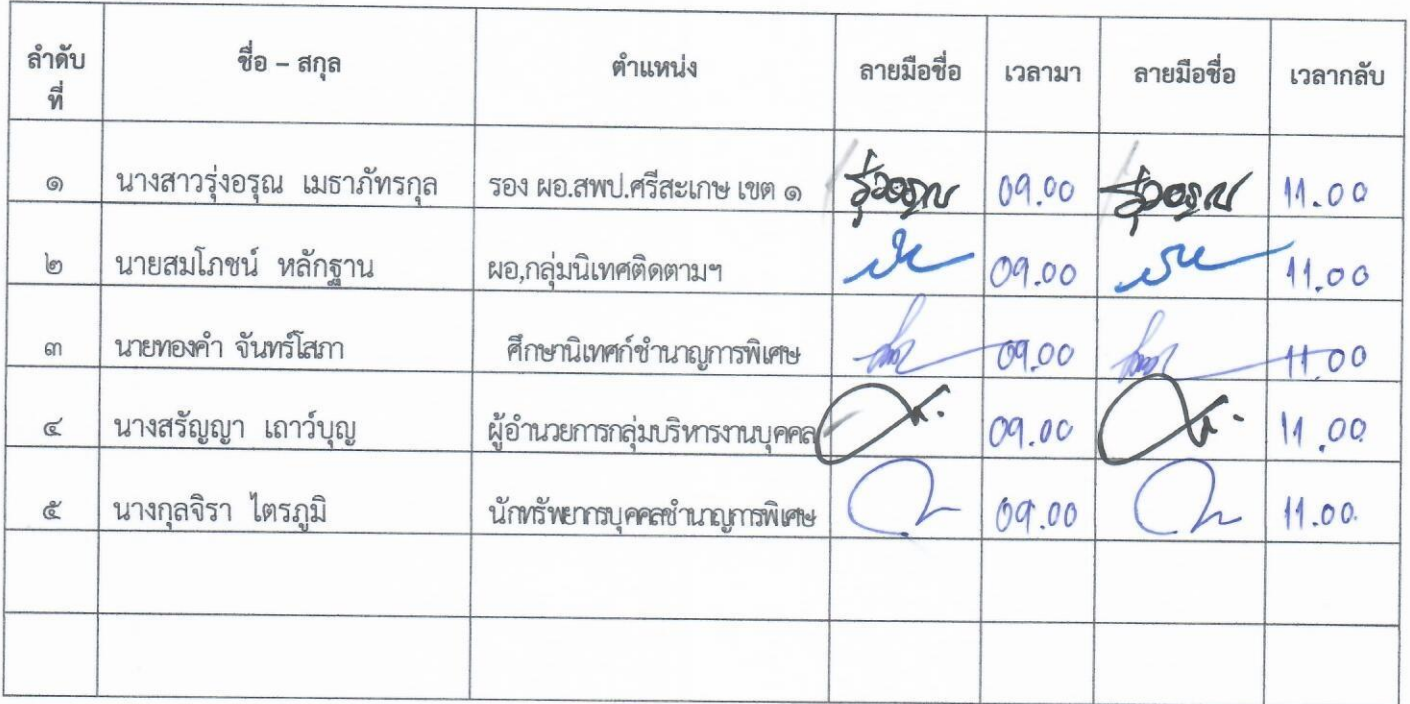 ลำดับที่ ชื่อ – สกุล ตำแหน่ง ลายมือชื่อ เวลามา ลายมือชื่อ เวลากลับ
๑ นางสาวรุ่งอรุณ เมธาภัทรกุล รอง ผอ.สพป.ศรีสะเกษ เขต ๑ รุ่งอรุณ 09.00 รุ่งอรุณ 11.00
๒ นายสมโภชน์ หลักฐาน ผอ,กลุ่มนิเทศติดตามฯ 09.00 11.00
๓ นายทองคำ จันทร์โสภา ศึกษานิเทศก์ชำนาญการพิเศษ 09.00 11.00
๔ นางสรัญญา เถาว์บุญ ผู้อำนวยการกลุ่มบริหารงานบุคคล 09.00 11.00
๕ นางกุลจิรา ไตรภูมิ นักทรัพยากรบุคคลชำนาญการพิเศษ 09.00 11.00